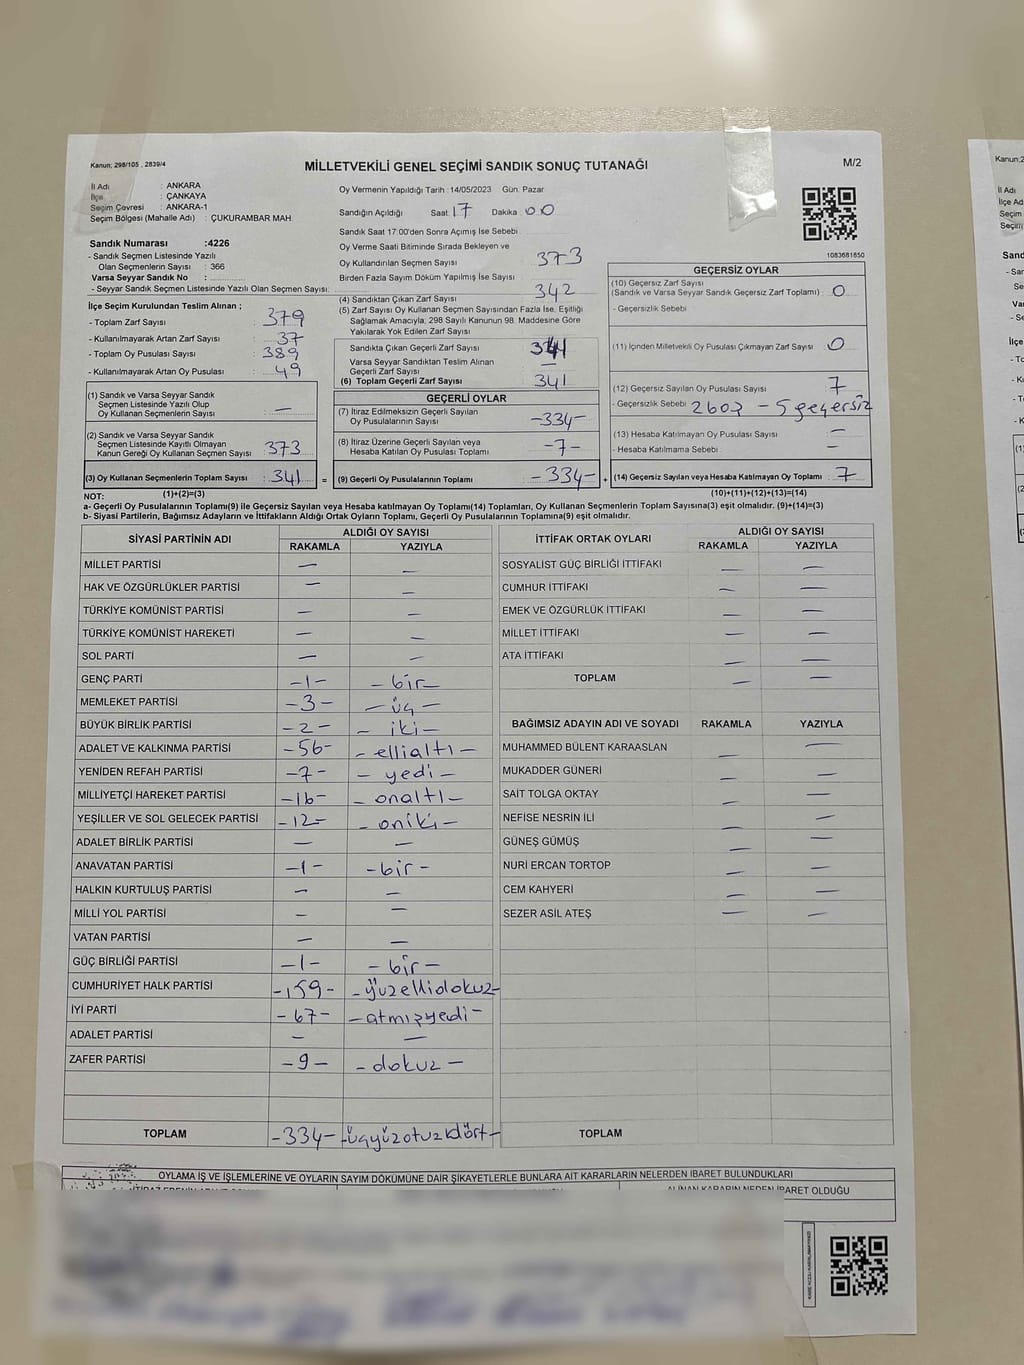 Kanun; 298/105 , 2839/4
MİLLETVEKİLİ GENEL SEÇİMİ SANDIK SONUÇ TUTANAĞI
M/2
İl Adı : ANKARA
İlçe : ÇANKAYA
Seçim Çevresi : ANKARA-1
Seçim Bölgesi (Mahalle Adı) : ÇUKURAMBAR MAH.
Sandık Numarası :4226
- Sandık Seçmen Listesinde Yazılı
Olan Seçmenlerin Sayısı : 366
Varsa Seyyar Sandık No :
- Seyyar Sandık Seçmen Listesinde Yazılı Olan Seçmen Sayısı:
Oy Vermenin Yapıldığı Tarih :14/05/2023 Gün: Pazar
Sandığın Açıldığı Saat 17 Dakika 00
Sandık Saat 17:00'den Sonra Açımış İse Sebebi
Oy Verme Saati Bitiminde Sırada Bekleyen ve
Oy Kullandırılan Seçmen Sayısı 373
Birden Fazla Sayım Döküm Yapılmış İse Sayısı
1083681850
İlçe Seçim Kurulundan Teslim Alınan ;
- Toplam Zarf Sayısı : 379
- Kullanılmayarak Artan Zarf Sayısı : 37
- Toplam Oy Pusulası Sayısı : 389
- Kullanılmayarak Artan Oy Pusulası : 49
(1) Sandık ve Varsa Seyyar Sandık
Seçmen Listesinde Yazılı Olup
Oy Kullanan Seçmenlerin Sayısı : —
(2) Sandık ve Varsa Seyyar Sandık
Seçmen Listesinde Kayıtlı Olmayan
Kanun Gereği Oy Kullanan Seçmen Sayısı : 373
(3) Oy Kullanan Seçmenlerin Toplam Sayısı : 341
(4) Sandıktan Çıkan Zarf Sayısı 342
(5) Zarf Sayısı Oy Kullanan Seçmen Sayısından Fazla İse, Eşitliği
Sağlamak Amacıyla, 298 Sayılı Kanunun 98. Maddesine Göre
Yakılarak Yok Edilen Zarf Sayısı
Sandıkta Çıkan Geçerli Zarf Sayısı 341
Varsa Seyyar Sandıktan Teslim Alınan
Geçerli Zarf Sayısı —
(6) Toplam Geçerli Zarf Sayısı 341
GEÇERLİ OYLAR
(7) İtiraz Edilmeksizin Geçerli Sayılan
Oy Pusulalarının Sayısı -334-
(8) İtiraz Üzerine Geçerli Sayılan veya
Hesaba Katılan Oy Pusulası Toplamı -7-
= (9) Geçerli Oy Pusulalarının Toplamı -334- +
GEÇERSİZ OYLAR
(10) Geçersiz Zarf Sayısı
(Sandık ve Varsa Seyyar Sandık Geçersiz Zarf Toplamı) : 0
- Geçersizlik Sebebi
(11) İçinden Milletvekili Oy Pusulası Çıkmayan Zarf Sayısı : 0
(12) Geçersiz Sayılan Oy Pusulası Sayısı 7
- Geçersizlik Sebebi - 5 geçersiz
(13) Hesaba Katılmayan Oy Pusulası Sayısı —
- Hesaba Katılmama Sebebi : —
(14) Geçersiz Sayılan veya Hesaba Katılmayan Oy Toplamı : 7
NOT: (1)+(2)=(3) (10)+(11)+(12)+(13)=(14)
a- Geçerli Oy Pusulalarının Toplamı(9) ile Geçersiz Sayılan veya Hesaba katılmayan Oy Toplamı(14) Toplamları, Oy Kullanan Seçmenlerin Toplam Sayısına(3) eşit olmalıdır. (9)+(14)=(3)
b- Siyasi Partilerin, Bağımsız Adayların ve İttifakların Aldığı Ortak Oyların Toplamı, Geçerli Oy Pusulalarının Toplamına(9) eşit olmalıdır.
SİYASİ PARTİNİN ADI ALDIĞI OY SAYISI
RAKAMLA YAZIYLA
MİLLET PARTİSİ — —
HAK VE ÖZGÜRLÜKLER PARTİSİ — —
TÜRKİYE KOMÜNİST PARTİSİ — —
TÜRKİYE KOMÜNİST HAREKETİ — —
SOL PARTİ — —
GENÇ PARTİ -1- - bir -
MEMLEKET PARTİSİ -3- - üç -
BÜYÜK BİRLİK PARTİSİ -2- - iki -
ADALET VE KALKINMA PARTİSİ -56- - ellialtı -
YENİDEN REFAH PARTİSİ -7- - yedi -
MİLLİYETÇİ HAREKET PARTİSİ -16- - onaltı -
YEŞİLLER VE SOL GELECEK PARTİSİ -12- - oniki -
ADALET BİRLİK PARTİSİ — —
ANAVATAN PARTİSİ -1- -bir-
HALKIN KURTULUŞ PARTİSİ — —
MİLLİ YOL PARTİSİ — —
VATAN PARTİSİ — —
GÜÇ BİRLİĞİ PARTİSİ -1- - bir -
CUMHURİYET HALK PARTİSİ -159- - yüzellidokuz-
İYİ PARTİ -67- - atmışyedi -
ADALET PARTİSİ — —
ZAFER PARTİSİ -9- - dokuz -
TOPLAM -334- -üçyüzotuzdört-
İTTİFAK ORTAK OYLARI ALDIĞI OY SAYISI
RAKAMLA YAZIYLA
SOSYALİST GÜÇ BİRLİĞİ İTTİFAKI — —
CUMHUR İTTİFAKI — —
EMEK VE ÖZGÜRLÜK İTTİFAKI — —
MİLLET İTTİFAKI — —
ATA İTTİFAKI — —
TOPLAM — —
BAĞIMSIZ ADAYIN ADI VE SOYADI RAKAMLA YAZIYLA
MUHAMMED BÜLENT KARAASLAN — —
MUKADDER GÜNERİ — —
SAİT TOLGA OKTAY — —
NEFİSE NESRİN İLİ — —
GÜNEŞ GÜMÜŞ — —
NURİ ERCAN TORTOP — —
CEM KAHYERİ — —
SEZER ASİL ATEŞ — —
TOPLAM
OYLAMA İŞ VE İŞLEMLERİNE VE OYLARIN SAYIM DÖKÜMÜNE DAİR ŞİKAYETLERLE BUNLARA AİT KARARLARIN NELERDEN İBARET BULUNDUKLARI
ALINAN KARARIN NEDEN İBARET OLDUĞU
Kanun;2
İl Adı
İlçe Ad
Seçim
Seçim